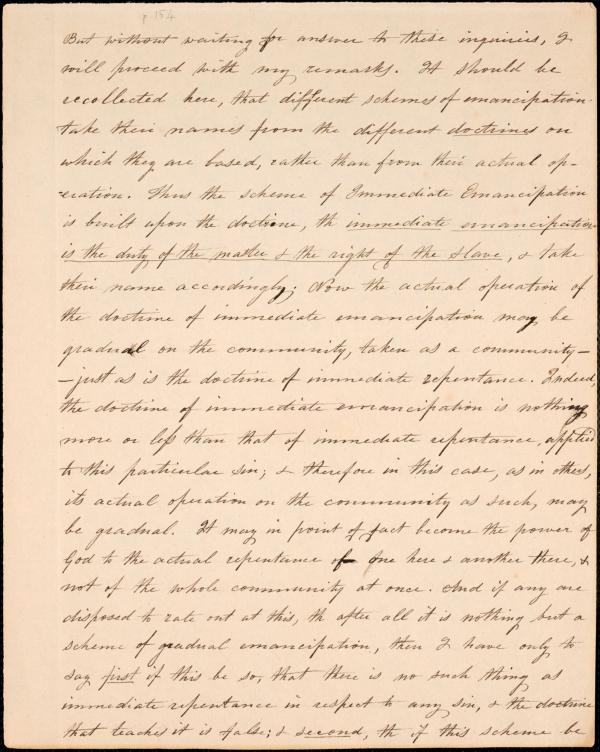 p. 154
But without waiting for answer to these inquiries, I
will proceed with my remarks. It should be
recollected here, that different schemes of emancipation
take their names from the different doctrines on
which they are based, rather than from their actual op-
-eration. Thus the scheme of Immediate Emancipation
is built upon the doctrine, th immediate emancipation
is the duty of the master & the right of the slave, & take
their name accordingly. Now the actual operation of
the doctrine of immediate emancipation may be
gradual on the community, taken as a community—
—just as is the doctrine of immediate repentance. Indeed,
the doctrine of immediate emancipation is nothing
more or less than that of immediate repentance, applied
to this particular sin; & therefore in this case, as in others,
its actual operation on the community as such, may
be gradual. It may in point of fact become the power of
God to the actual repentance of one here & another there, &
not of the whole community at once. And if any are
disposed to cry out at this, th after all it is nothing but a
scheme of gradual emancipation, then I have only to
say first if this be so, that there is no such thing as
immediate repentance in respect to any sin, & the doctrine
that teaches it is false; & second, th if this scheme be